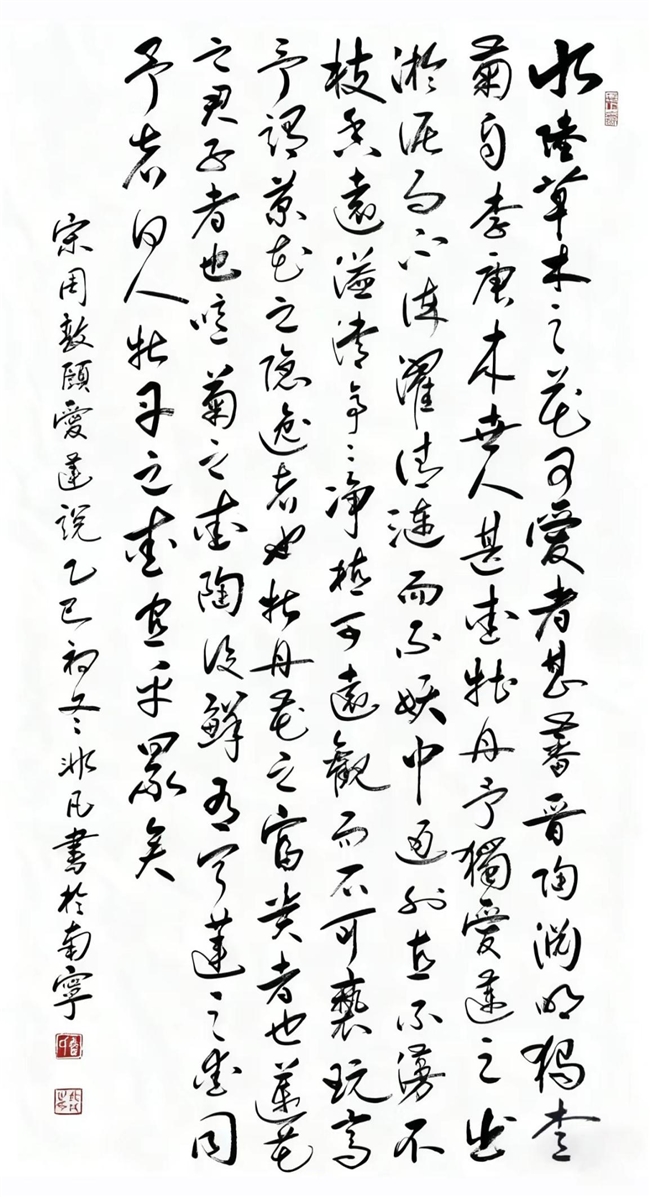 水陸草木之花可愛者甚蕃晉陶淵明獨愛
菊自李唐來世人甚愛牡丹予獨愛蓮之出
淤泥而不染濯清漣而不妖中通外直不蔓不
枝香遠溢清亭々淨植可遠觀而不可褻玩焉
予謂菊花之隱逸者也牡丹花之富貴者也蓮花
之君子者也噫菊之愛陶後鮮有聞蓮之愛同
予者何人牡丹之愛宜乎眾矣
宋周敦頤愛蓮說乙巳初冬非凡書於南寧